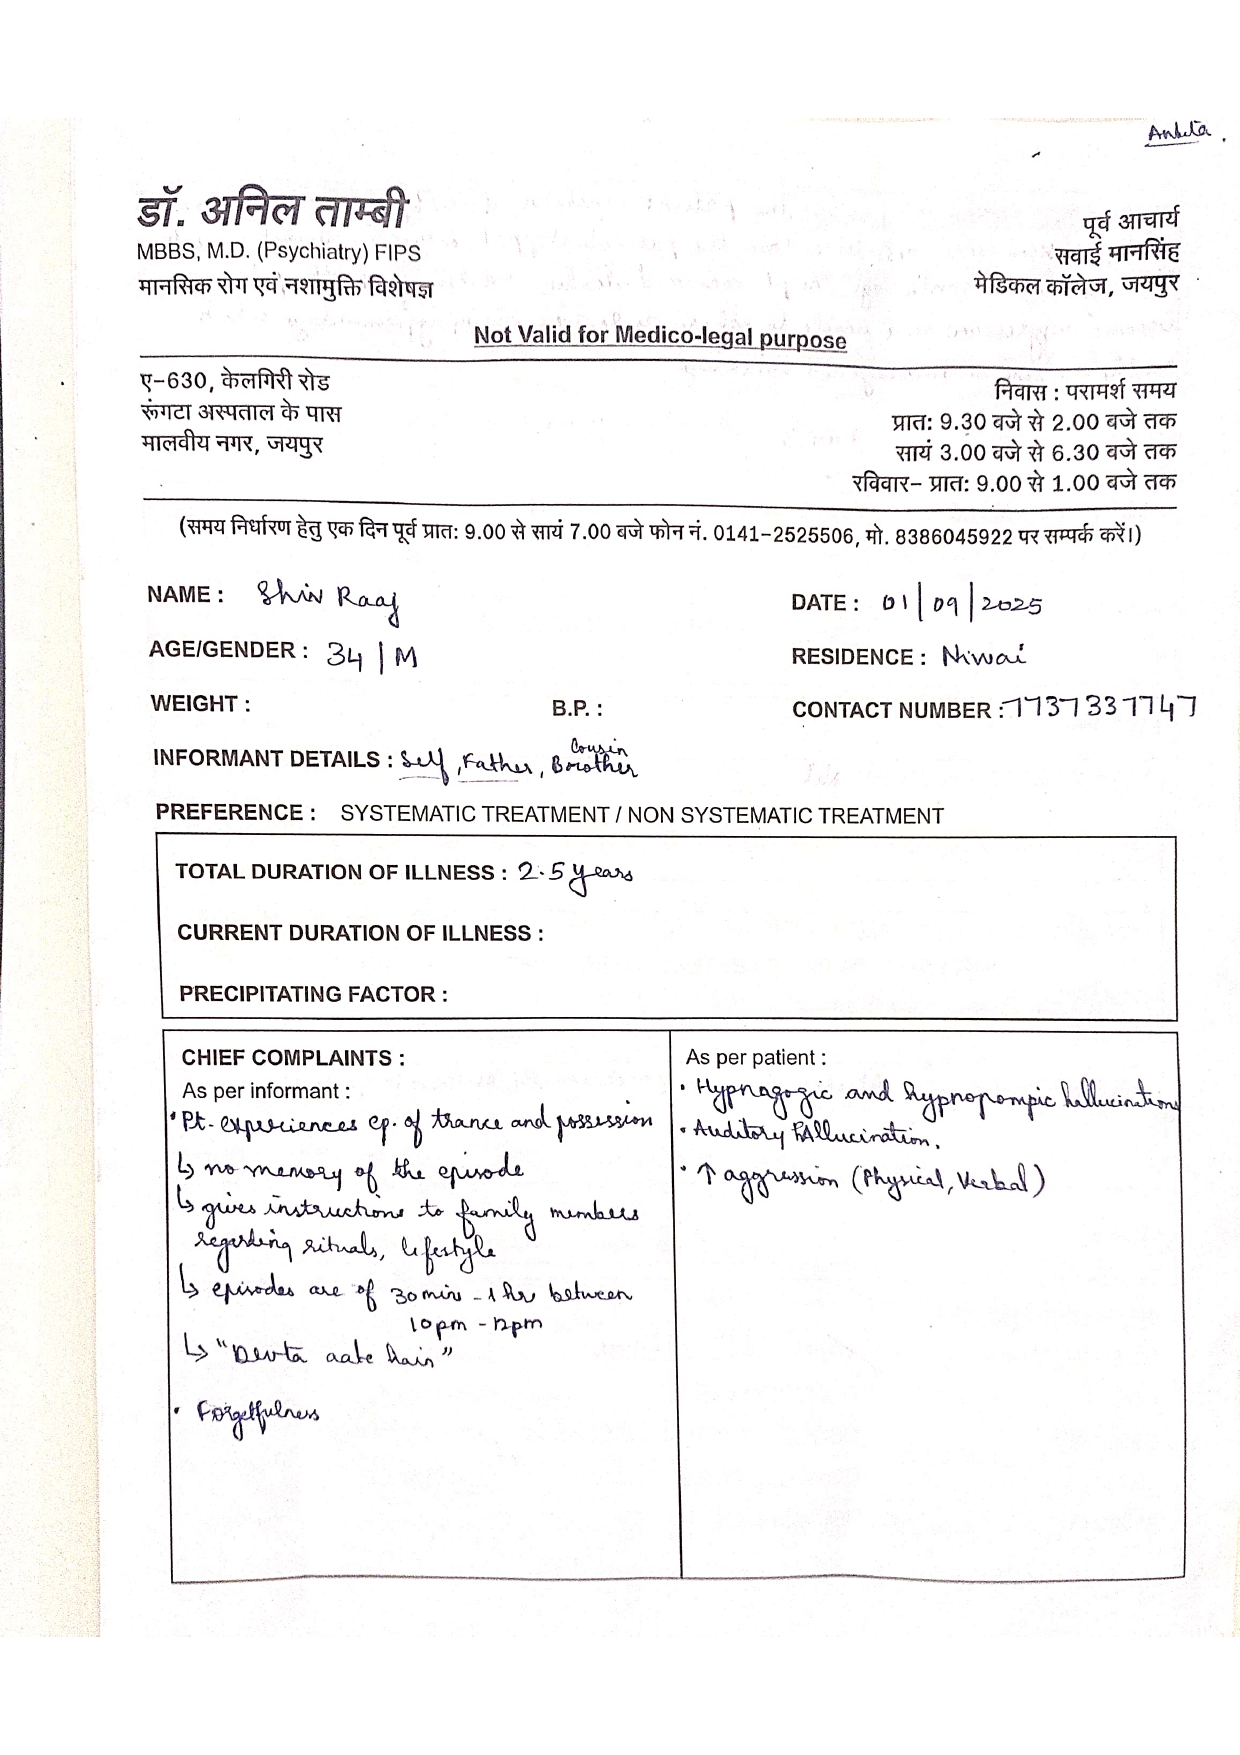 Ankita.
डॉ. अनिल ताम्बी
MBBS, M.D. (Psychiatry) FIPS
मानसिक रोग एवं नशामुक्ति विशेषज्ञ
पूर्व आचार्य
सवाई मानसिंह
मेडिकल कॉलेज, जयपुर
Not Valid for Medico-legal purpose
ए-630, केलगिरी रोड
रूंगटा अस्पताल के पास
मालवीय नगर, जयपुर
निवास : परामर्श समय
प्रात: 9.30 बजे से 2.00 बजे तक
सायं 3.00 बजे से 6.30 बजे तक
रविवार- प्रात: 9.00 से 1.00 बजे तक
(समय निर्धारण हेतु एक दिन पूर्व प्रात: 9.00 से सायं 7.00 बजे फोन नं. 0141-2525506, मो. 8386045922 पर सम्पर्क करें।)
NAME : Shiv Raaj
DATE : 01/09/2025
AGE/GENDER : 34/M
RESIDENCE : Niwai
WEIGHT :
B.P. :
CONTACT NUMBER : 7737337747
INFORMANT DETAILS : Self, Father, Cousin Brother
PREFERENCE : SYSTEMATIC TREATMENT / NON SYSTEMATIC TREATMENT
TOTAL DURATION OF ILLNESS : 2.5 years
CURRENT DURATION OF ILLNESS :
PRECIPITATING FACTOR :
CHIEF COMPLAINTS :
As per informant :
• Pt. experiences ep. of trance and possession
↳ no memory of the episode
↳ gives instructions to family members
regarding rituals, lifestyle
↳ episodes are of 30 mins - 1 hr between
10pm - 12pm
↳ "Devta aate hain"
• Forgetfulness
As per patient :
• Hypnagogic and hypnopompic hallucinations
• Auditory hallucination.
• ↑ aggression (Physical, Verbal)